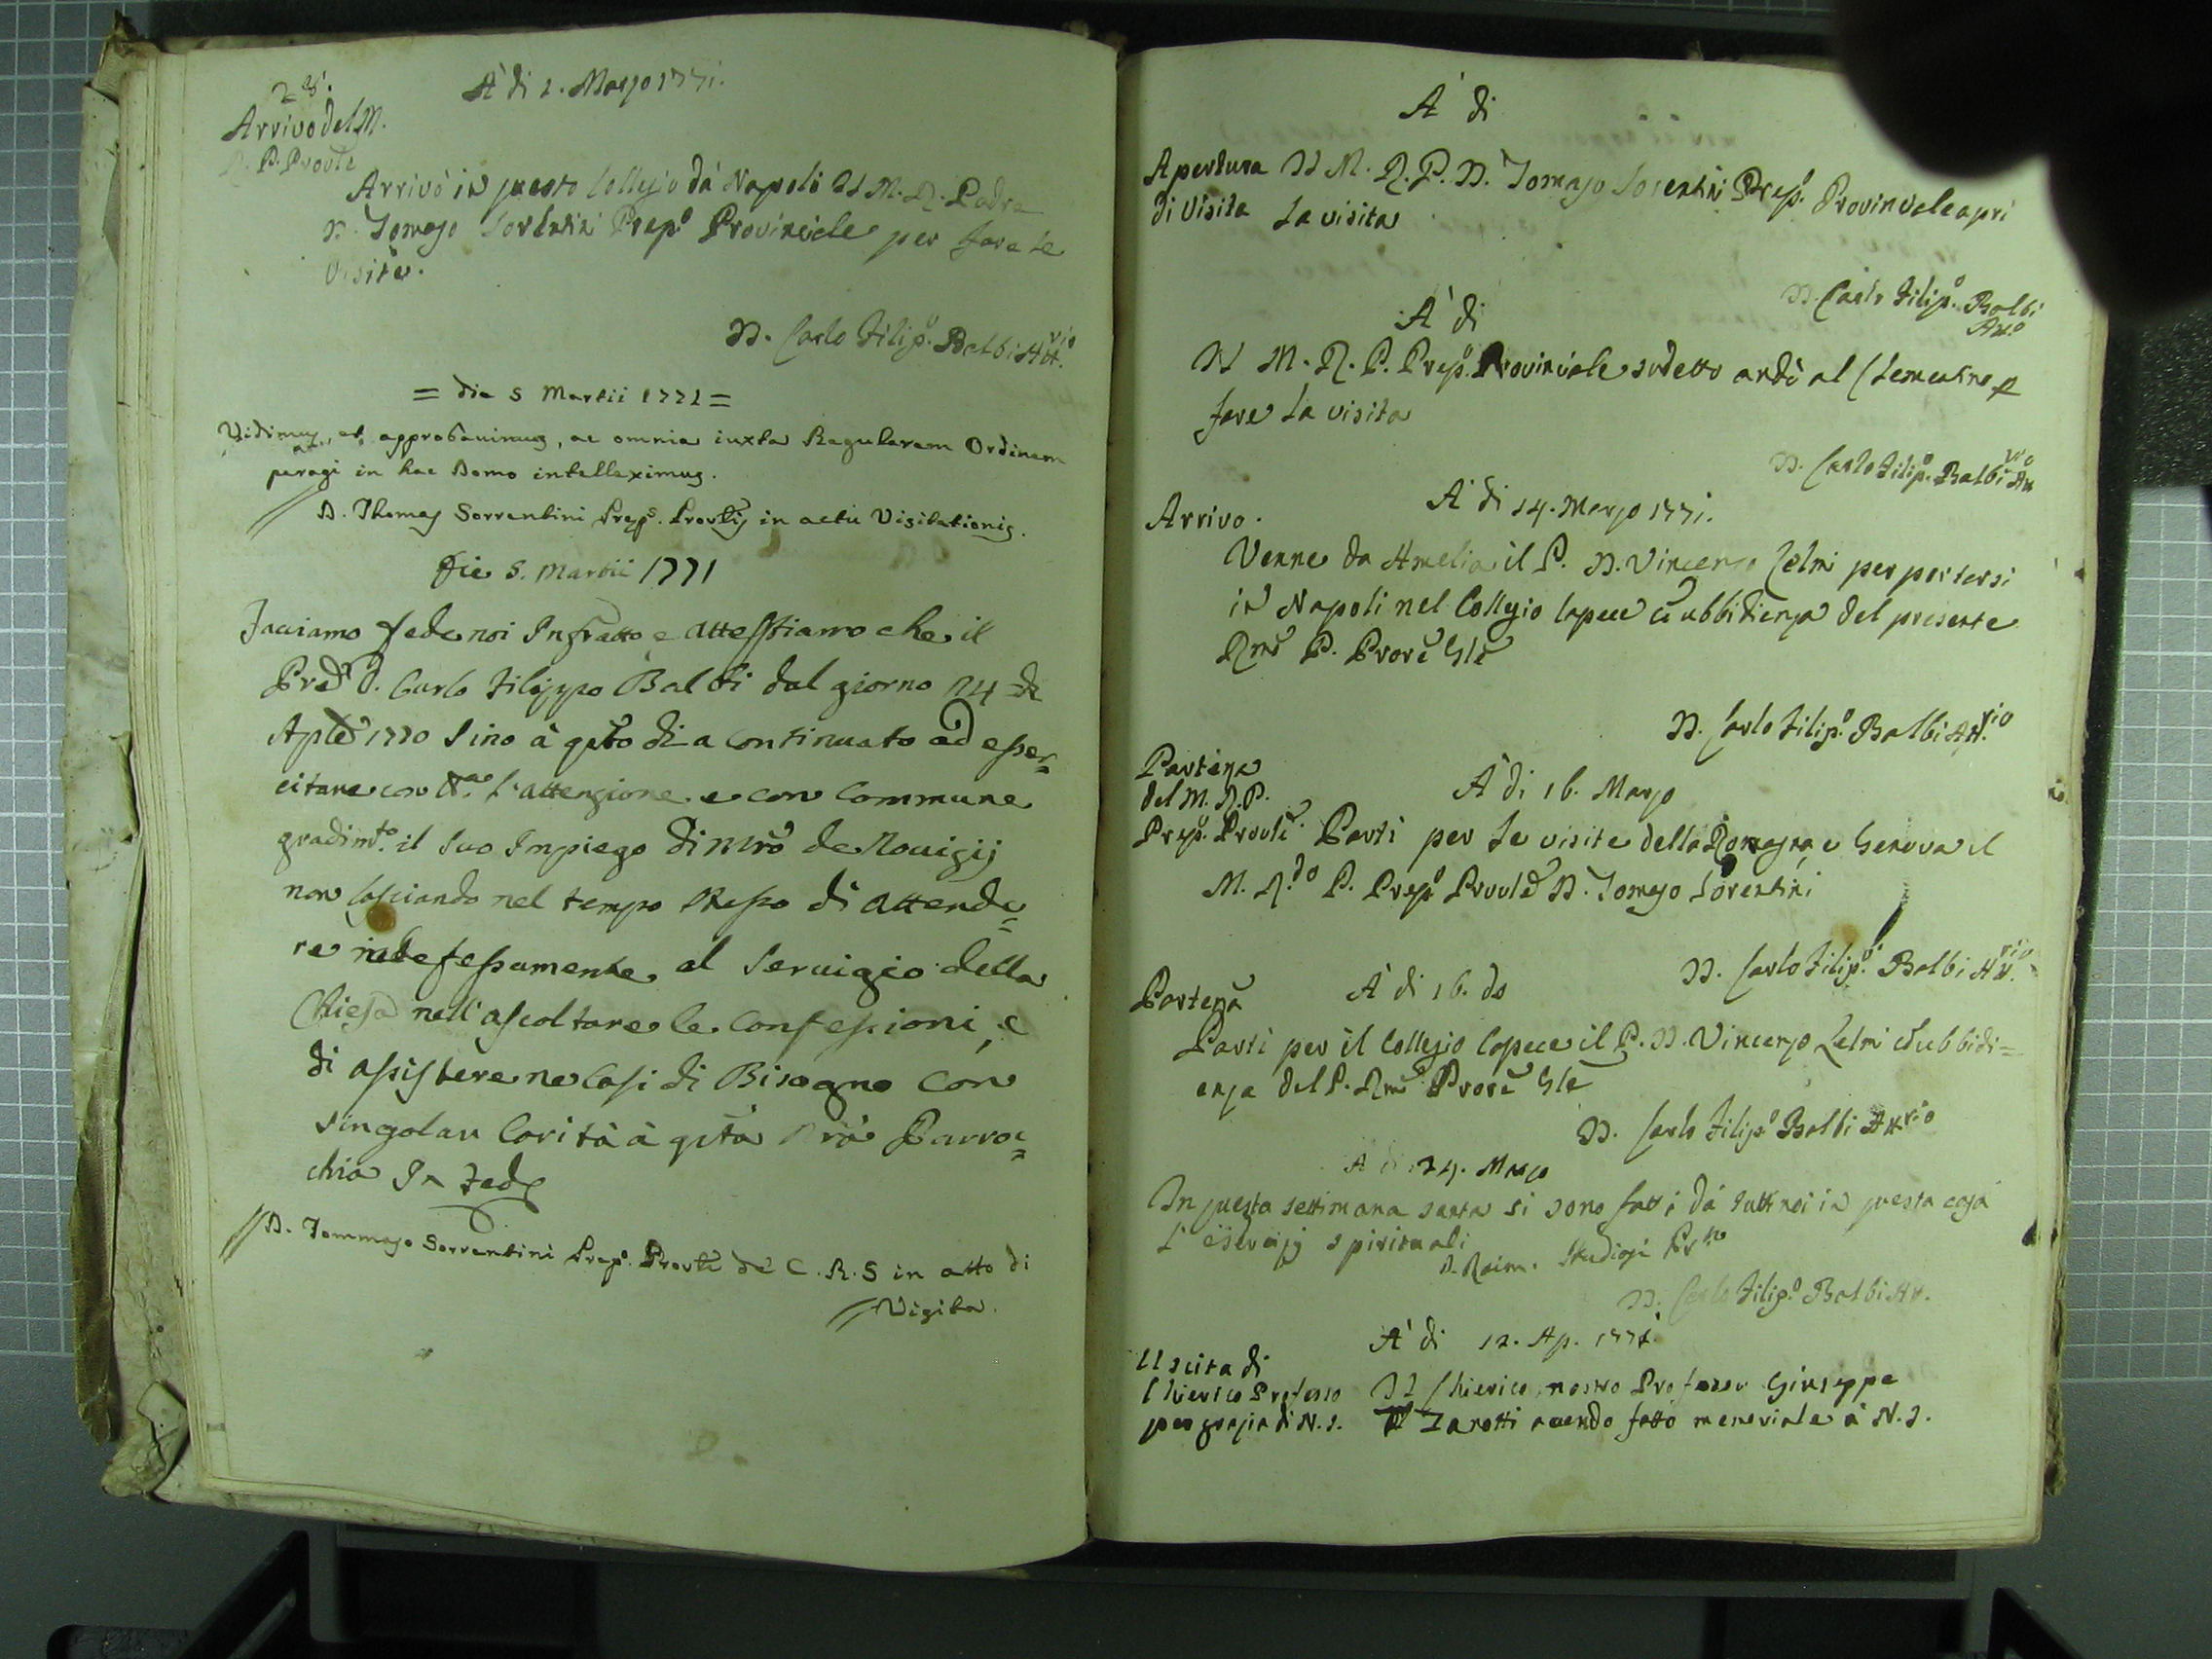 28.
A' di 2. Marzo 1771.
Arrivo del M.
R. P. Provle
Arrivò in questo Collegio dà Napoli Il M. R. Padre
D. Tomaso Sorentini Prepo Provinciale per fare le
Visite.
D. Carlo Filipo Balbi Attrio
= die 5 Martii 1771 =
Vidimus, et approbavimus, ac omnia iuxta Regularem Ordinem
peragi in hac Domo intelleximus.
D. Thomas Sorrentini Preps. Provlis in actu Visitationis.
Die 5. Martii 1771
Facciamo fede noi Infratto e attestiamo che il
Pred P. Carlo Filippo Balbi dal giorno 24 di
Aple 1770 sino à qsto di a continuato ad esser=
citare con tta l'attenzione e con commune
gradimto. il suo Impiego di Mro de Novizij
non lasciando nel tempo stesso di attende=
re indefessamente al servigio della
Chiesa nell'ascoltare le confessioni, e
di assistere ne casi di Bisogno con
singolar carità à qsta nra Parro=
chia In fede
D. Tommaso Sorrentini Prepo. Provle de C. R. S in atto di
Visita.
A' di
Apertura Il M. R. P. D. Tomaso Sorentini Prepo. Provinciale aprì
di Visita la visita
D. Carlo Filipo. Balbi
Atto
A' di
Il M. R. P. Prepo. Provinciale sudetto andò al Clementino p
fare la visita
D. Carlo Filipo. Balbi Attrio
Arrivo.
A' di 14. Marzo 1771.
Venne da Amelia il P. D. Vincenzo Lelmi per portarsi
in Napoli nel Collegio Capece cu ubbidienza del presente
Rmo P. Prore Gle
D. Carlo Filipo. Balbi Attrio
Partenza
del M. R. P.
Prepo. Provle.
A' di 16. Marzo
Partì per le visite della Romagna, e Genova il
M. Rdo P. Prepo Provle D. Tomaso Sorentini
D. Carlo Filipo. Balbi Attrio
Partenza
A' di 16. do
Partì per il Collegio Capece il P. D. Vincenzo Lelmi cu ubbidi=
enza del P. Rmo Prore Gle
D. Carlo Filipo Balbi Attrio
A di 24. Marzo
In questa settimana santa si sono fatti dà tutti noi in questa casa
l'esercizj spirituali
D. Raim. Studiosi
D. Carlo Filipo. Balbi Att.
A' di 12. Ap. 1771.
Uscita di
Chierico Professo
per grazia di N. S.
Il Chierico nostro Professo Giuseppe
Zarotti avendo fatto memoriale à N. S.